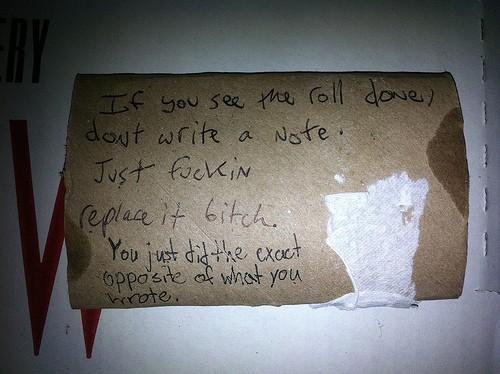 ERY
W
If you see the roll done,
dont write a note.
Just fuckin
replace it bitch.
You just did the exact
opposite of what you
wrote.